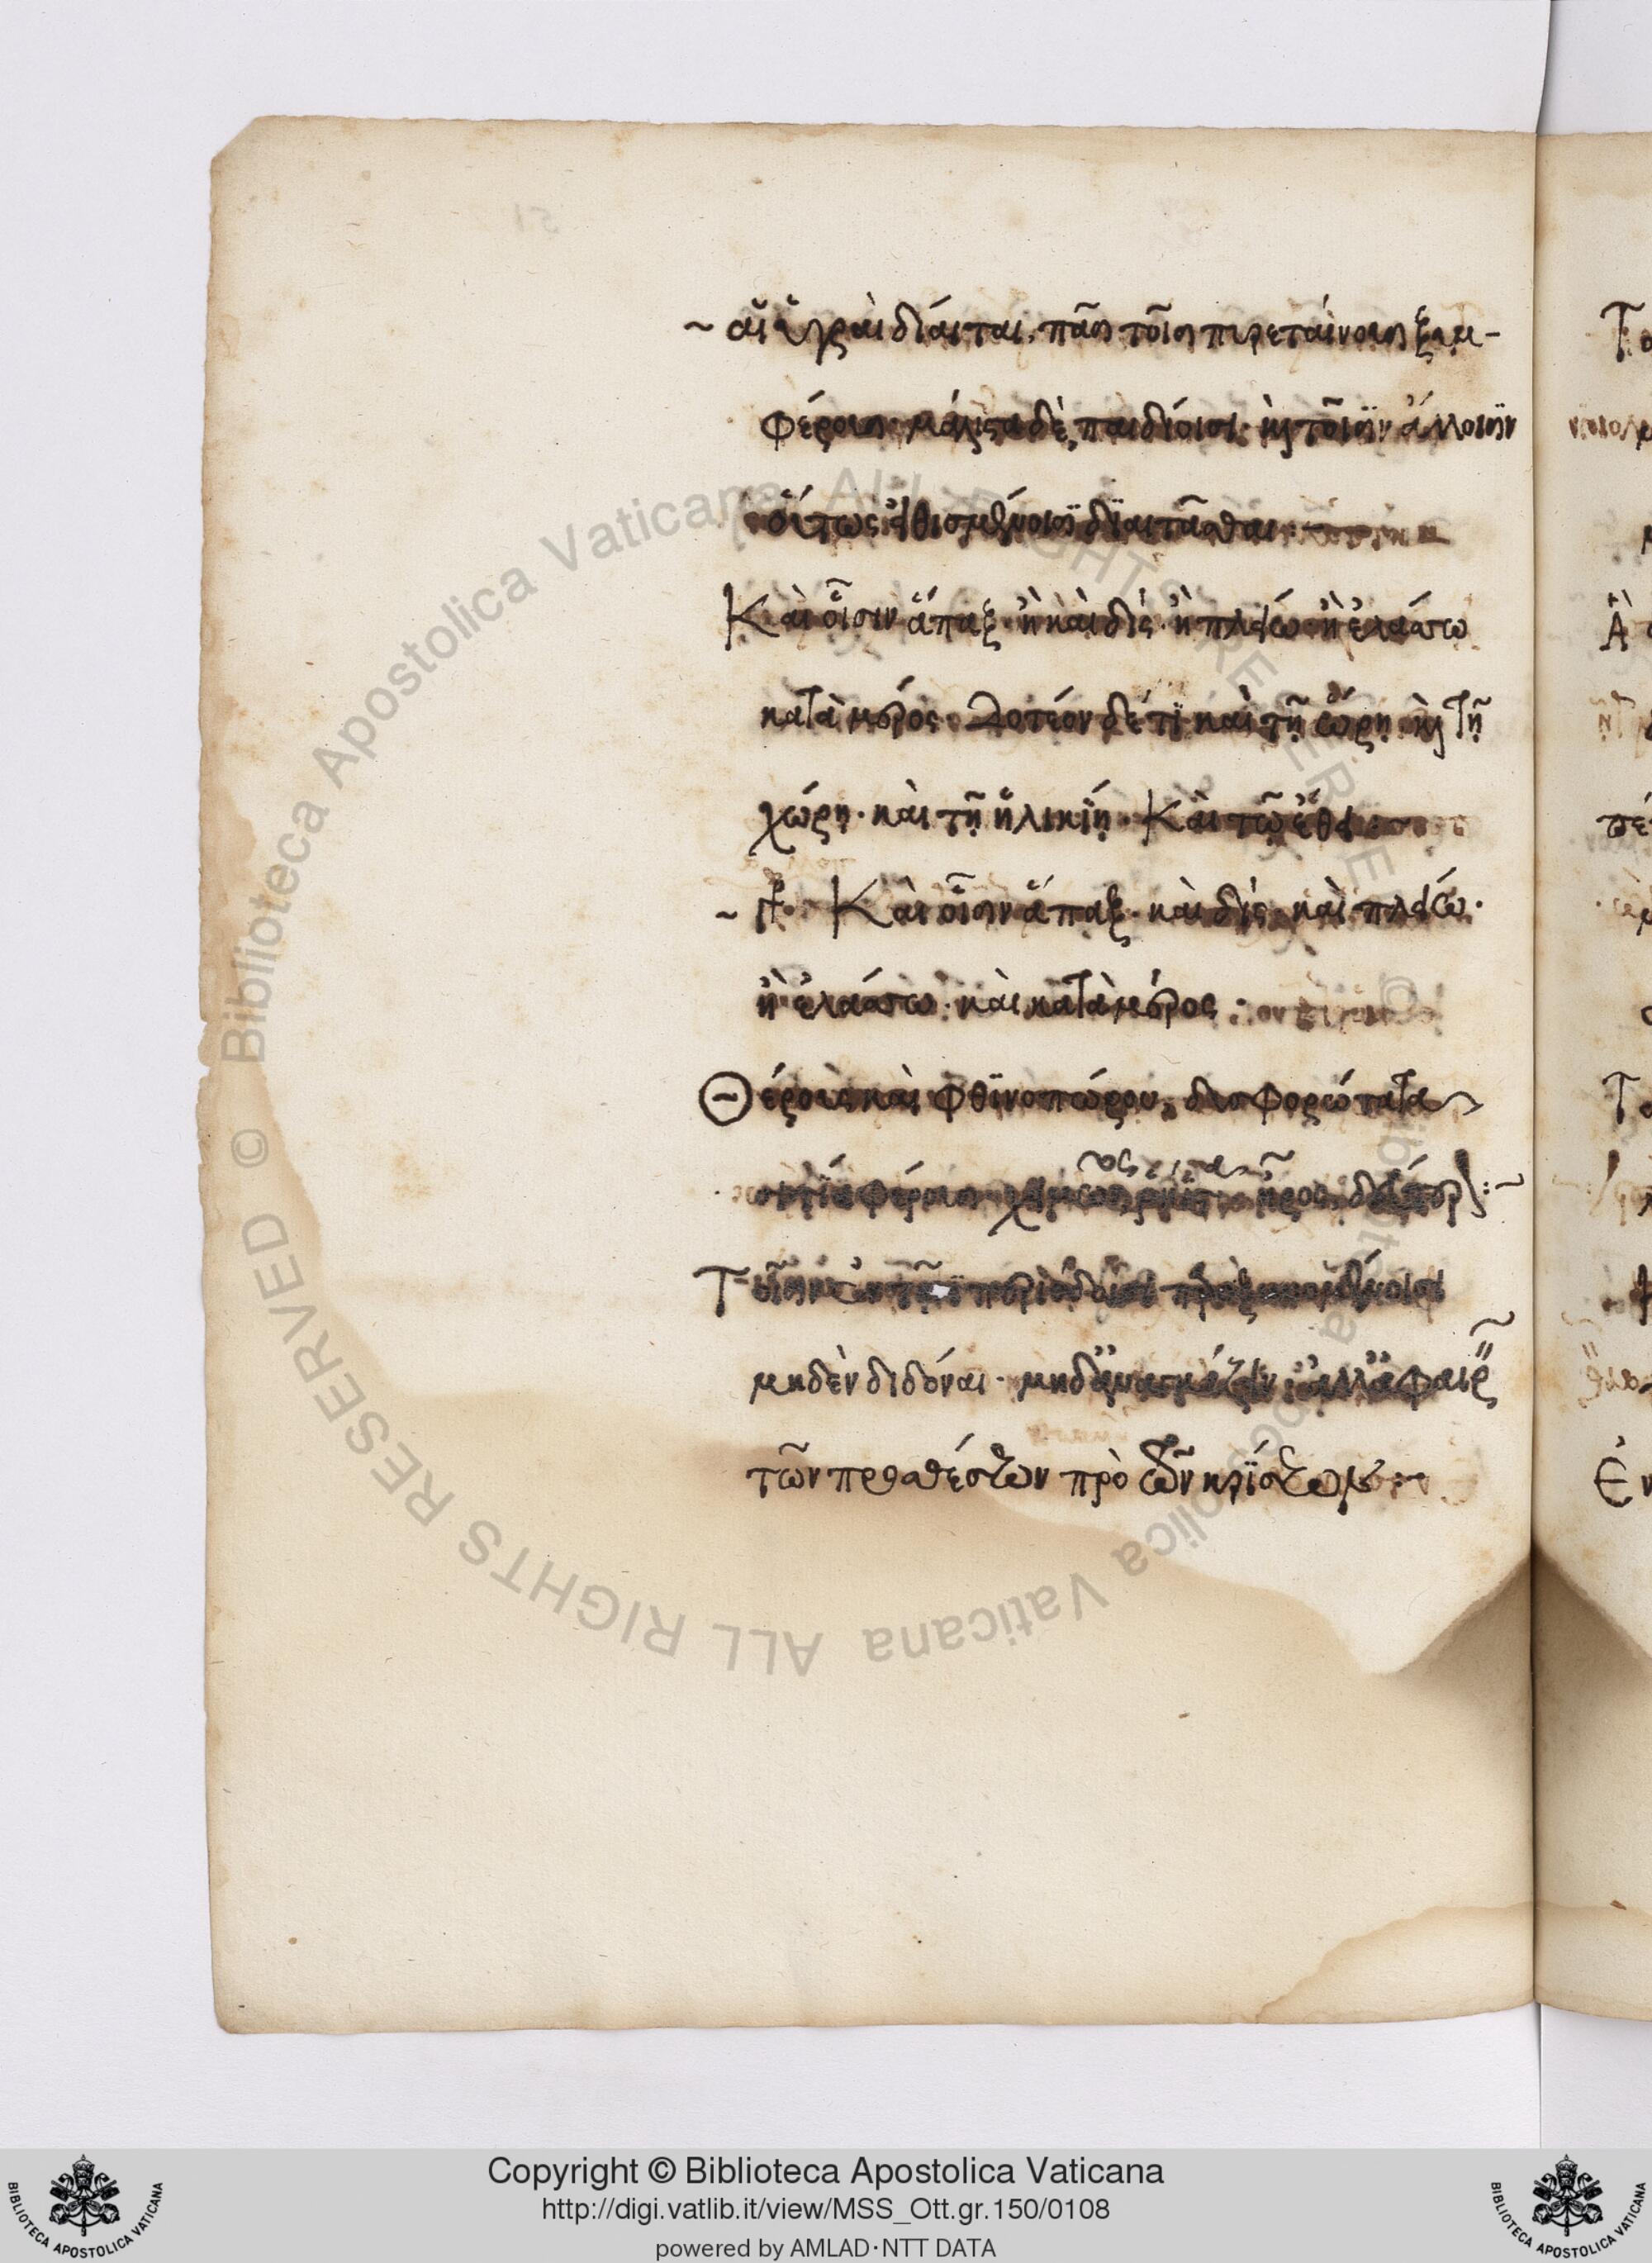 ~ αἱ ὑγραὶ δίαιται, πᾶσι τοῖσι πυρεταίνουσι ξυμ-
φέρουσι· μάλιστα δὲ παιδίοισι· καὶ τοῖσιν ἄλλοισιν
οὕτως εἰθισμένοισι διαιτᾶσθαι :~
Καὶ οἷσιν ἅπαξ· ἢ καὶ δίς· ἢ πλείω· ἢ ἐλάσσω
κατὰ μέρος· δοτέον δέ τι καὶ τῇ ὥρῃ καὶ τῇ
χώρῃ· καὶ τῇ ἡλικίῃ· Καὶ τῷ ἔθει :~
~ Καὶ οἷσιν ἅπαξ· καὶ δὶς· καὶ πλείω·
ἢ ἐλάσσω· καὶ κατὰ μέρος :
Θέρους καὶ φθινοπώρου, δυσφορώτατα
σιτία φέρουσι· χειμῶνος ἦρος δεύτερον :~
Τοῖσιν ἐν τῇσι περιόδοισι παροξυνομένοισι
μηδὲν διδόναι· μηδ' ἀναγκάζειν· ἀλλ' ἀφαιρ
τῶν προσθέσεων πρὸ τῶν κρίσεων :~
Copyright © Biblioteca Apostolica Vaticana
http://digi.vatlib.it/view/MSS_Ott.gr.150/0108
powered by AMLAD·NTT DATA
BIBLIOTECA APOSTOLICA VATICANA
BIBLIOTECA APOSTOLICA VATICANA
© Biblioteca Apostolica Vaticana ALL RIGHTS RESERVED © Biblioteca Apostolica Vaticana ALL RIGHTS RESERVED